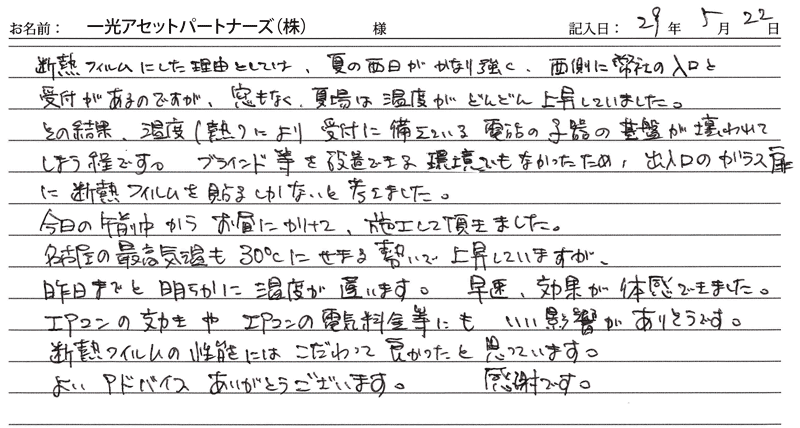 お名前： 一光アセットパートナーズ（株） 様 記入日： 29年 5月 22日
断熱フィルムにした理由としては、夏の西日がかなり強く、西側に弊社の入口と
受付があるのですが、窓もなく、夏場は温度がどんどん上昇していました。
その結果、温度（熱）により受付に備えている電話の子器の基盤が壊われて
しまう程です。 ブラインド等を設置できる環境でもなかったため、出入口のガラス扉
に断熱フィルムを貼るしかないと考えました。
今日の午前中からお昼にかけて、施工して頂きました。
名古屋の最高気温も30℃にせまる勢いで上昇していますが、
昨日までと明らかに温度が違います。 早速、効果が体感できました。
エアコンの効きやエアコンの電気料金等にもいい影響がありそうです。
断熱フィルムの性能にはこだわって良かったと思っています。
よいアドバイスありがとうございます。 感謝です。